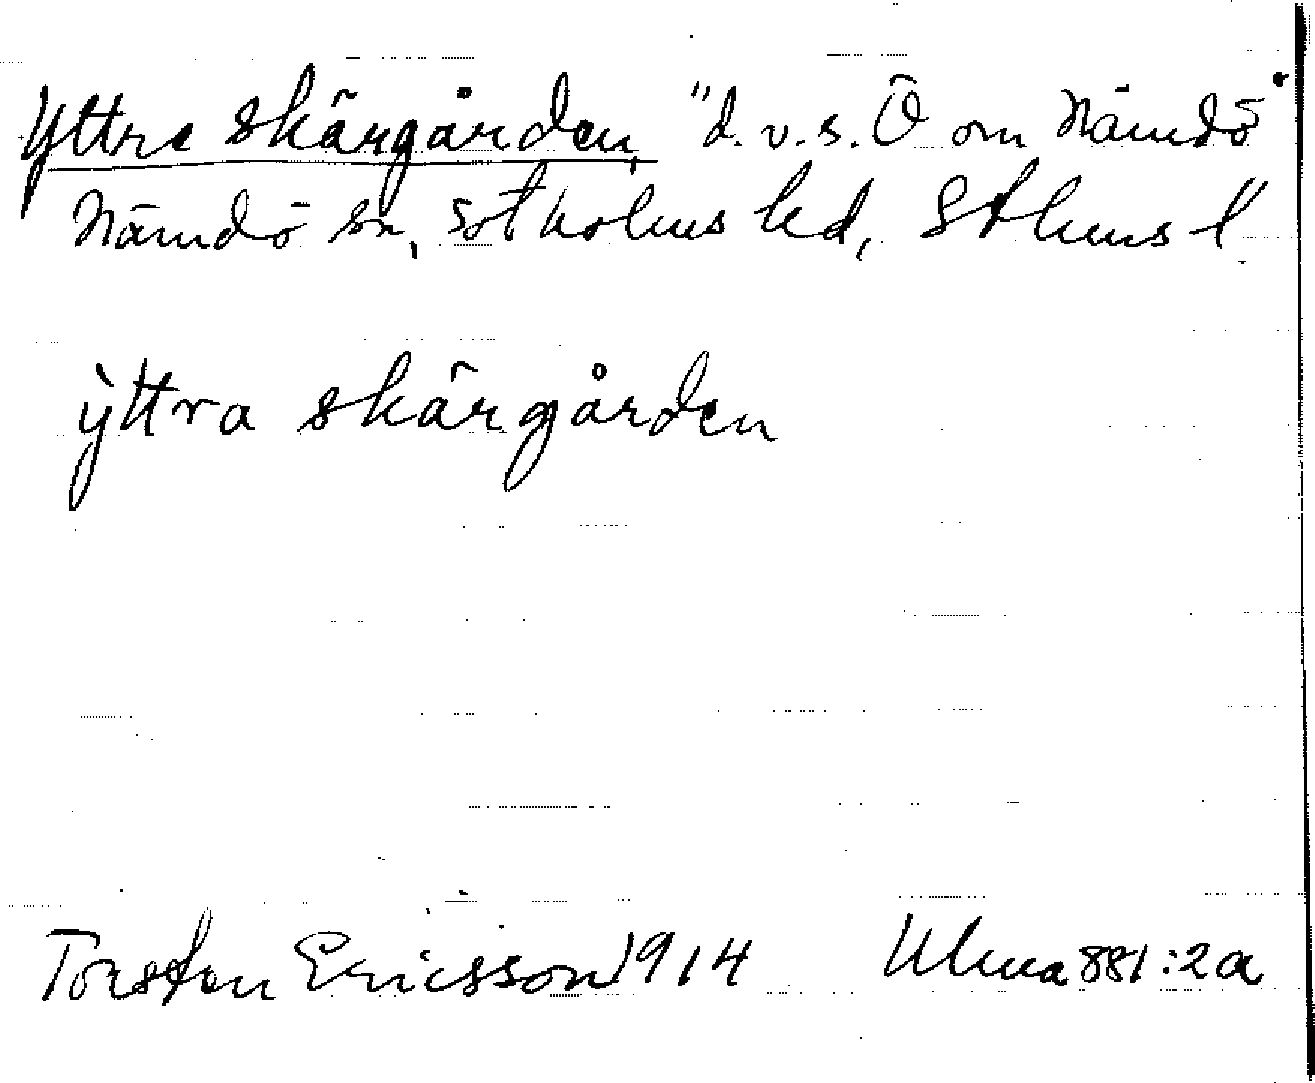 Yttre skärgården, "d.v.s. Ö om Nämdö
Nämdö sn, Sotholms hd, Sthms l"
ỳttra skärgården
Torsten Ericsson 1914 Ulma 881:2a